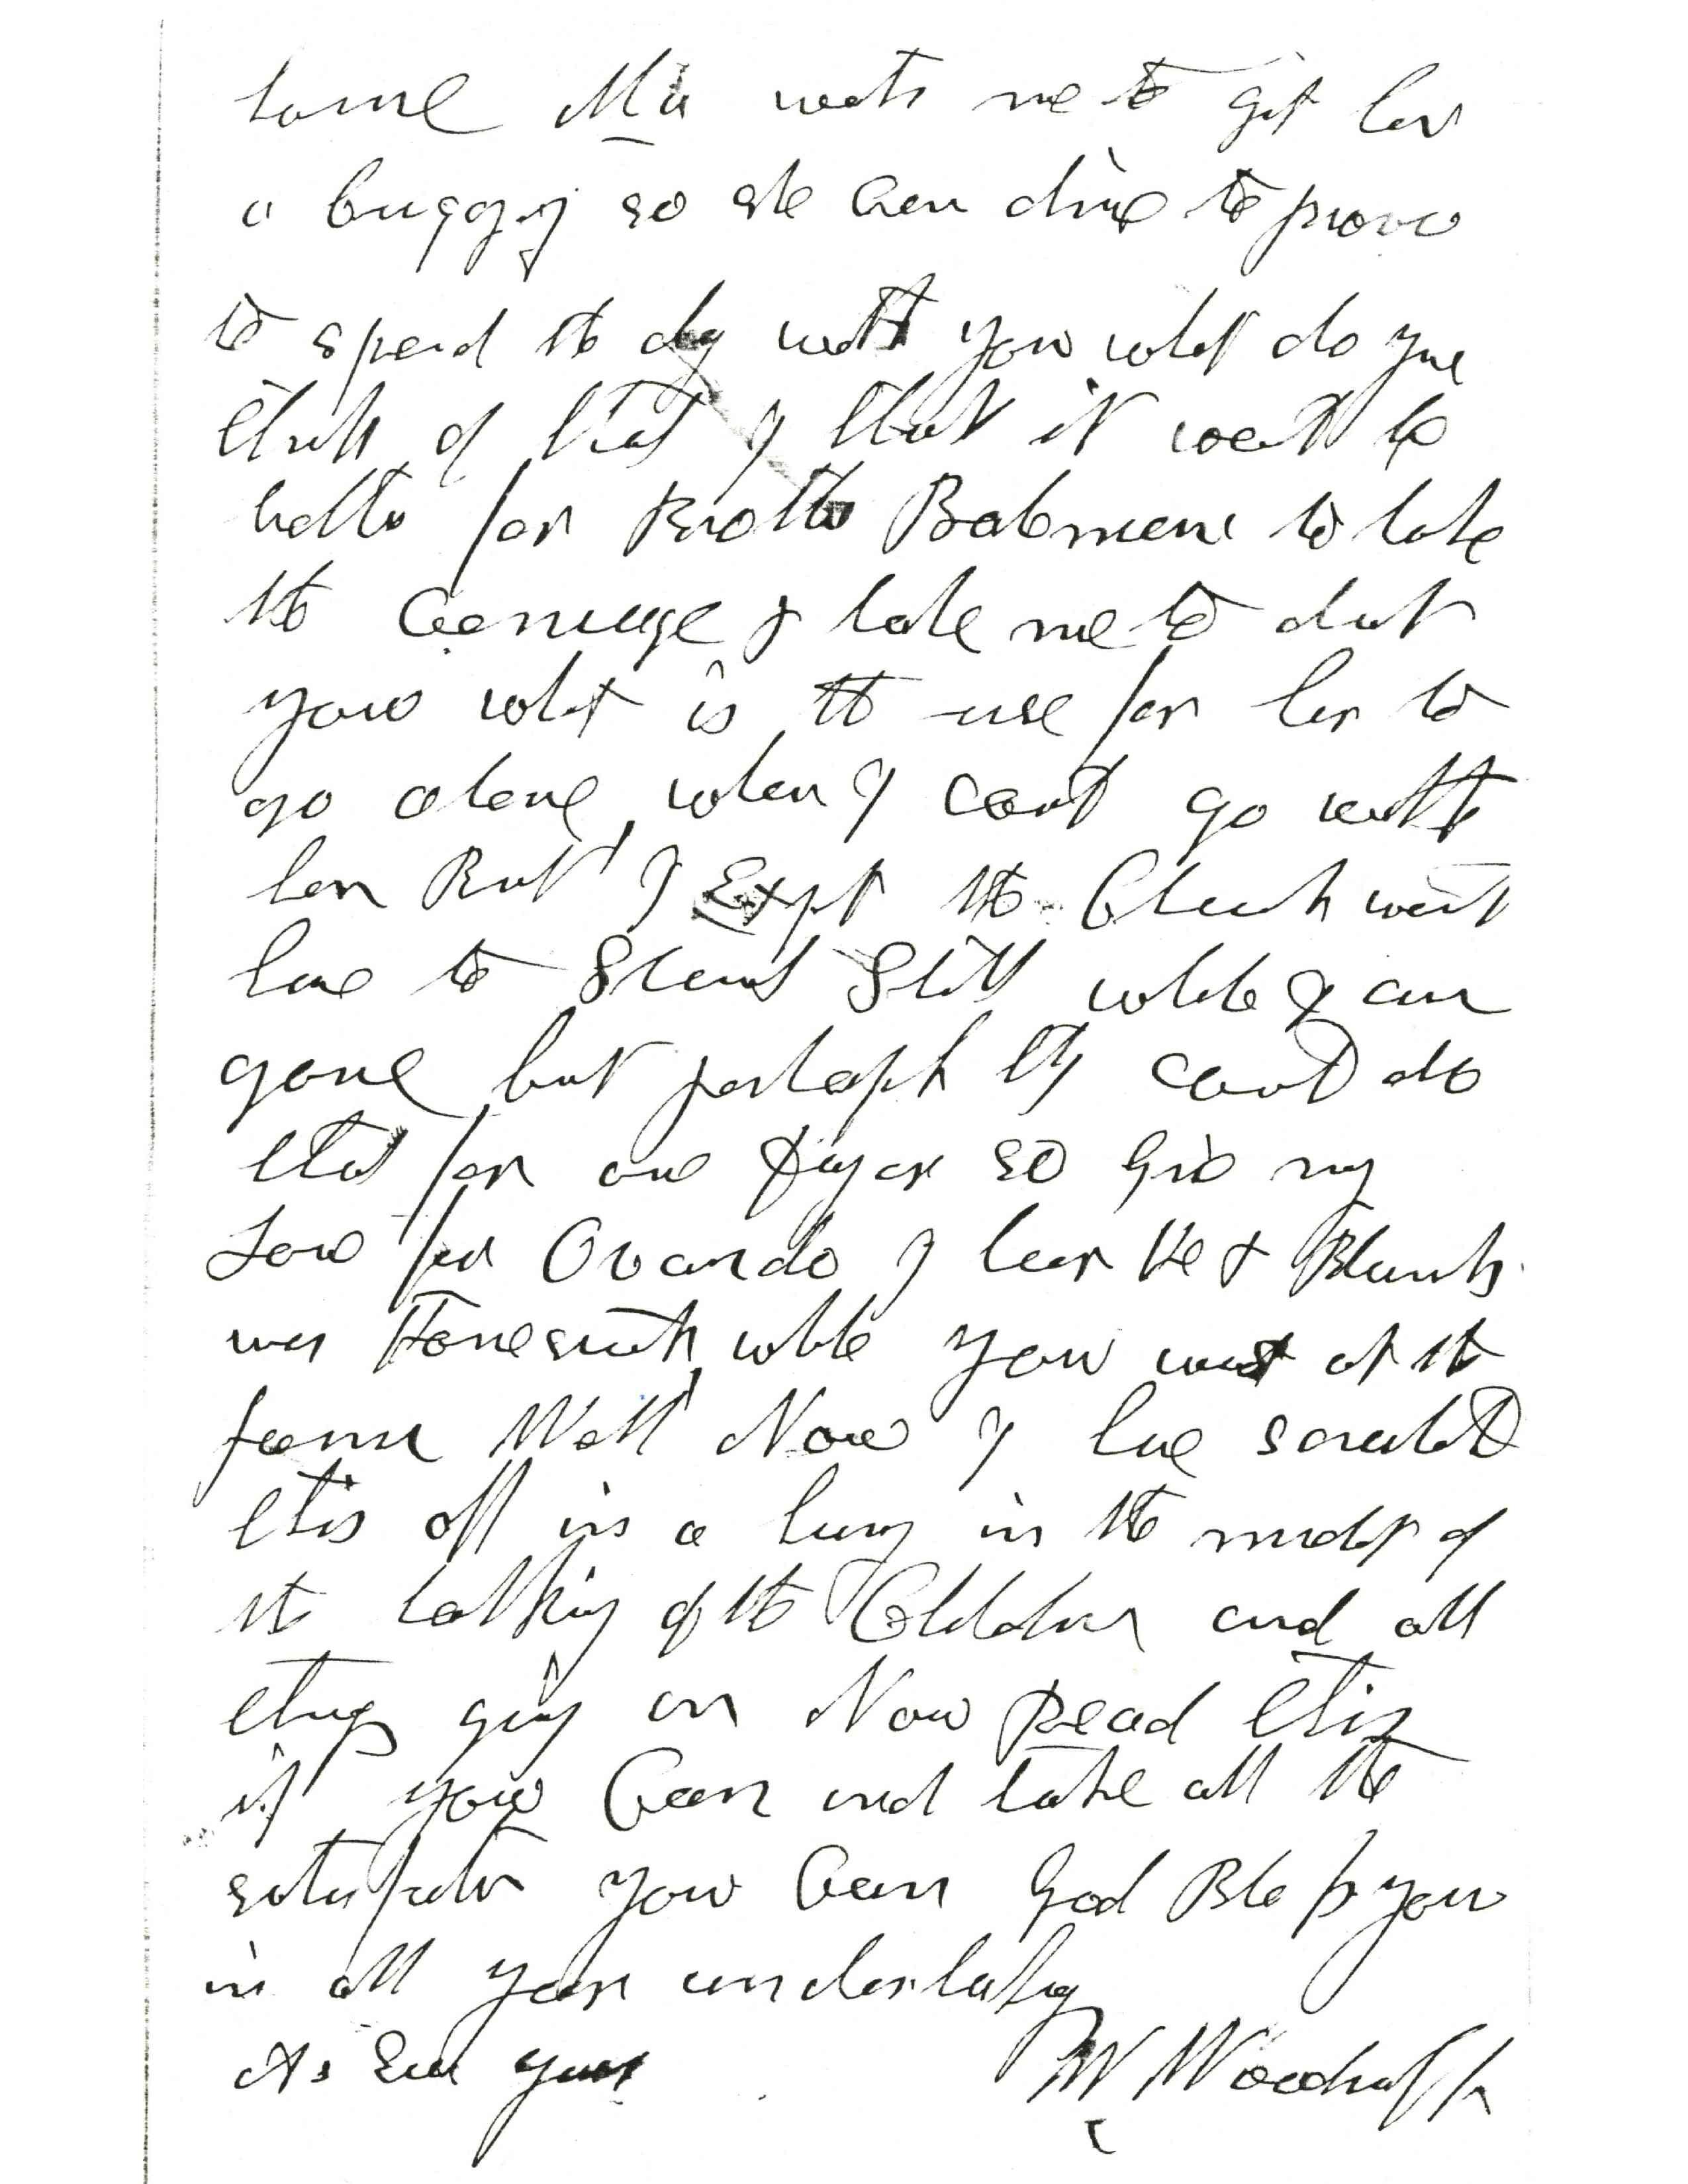 home Ma wants me to git her
a buggy so she Can drive to provo
to spend the day with you what do you
think of that I think it would be
better for Brother Bateman to take
the Carriage & take me to
you what is the use for her to
go alone, when I cant go with
her But I Expt the Church would
have to Stand Still while I am
gone but perhaps they could do
that for one Day or so Give my
Love for Ovando I hear He & Blanch
was Homesick while you was at the
farm Well Now I have scratched
this off in a hurry in the midst of
the talking of the Children and all
things going on Now Read this
if you Can and take all the
satisfaction you Can God Bless you
in all your undertaking
As Ever yours W Woodruff